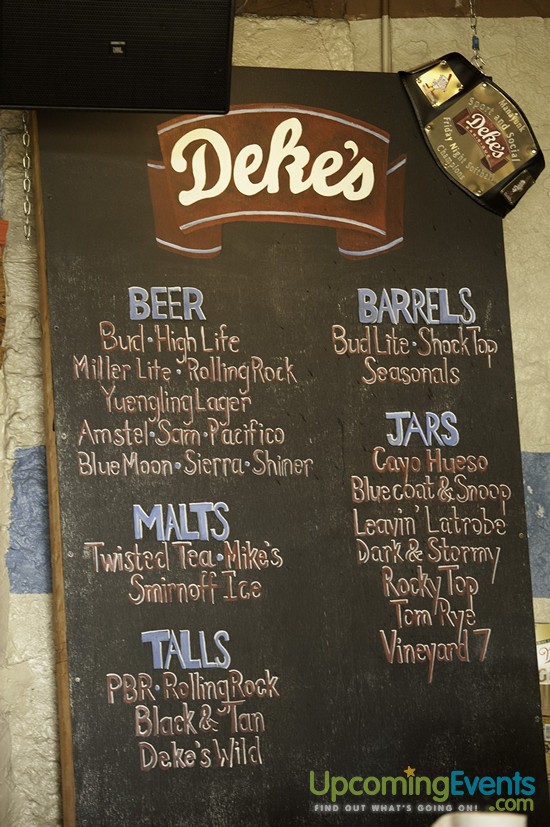 JBL
Deke's
Minitank
Sport and Social
Deke's
Friday Night Solstice
Champions
BEER
Bud • High Life
Miller Lite • Rolling Rock
Yuengling Lager
Amstel • Sam • Pacifico
Blue Moon • Sierra • Shiner
MALTS
Twisted Tea • Mike's
Smirnoff Ice
TALLS
PBR • Rolling Rock
Black & Tan
Deke's Wild
BARRELS
Bud Lite • Shock Top
Seasonals
JARS
Cayo Hueso
Bluecoat & Snoop
Leavin' Latrobe
Dark & Stormy
Rocky Top
Tom Rye
Vineyard 7
UpcomingEvents
FIND OUT WHAT'S GOING ON! .com